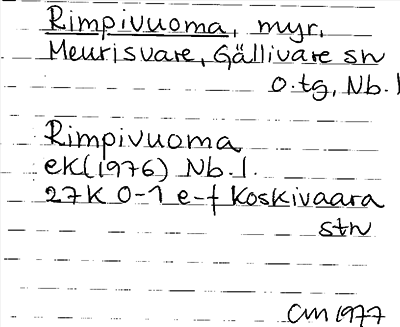 Rimpivuoma, myr,
Meurisvare, Gällivare sn
o. tg, Nb. l
Rimpivuoma
ek (1976) Nb. l.
27K 0-1 e-f Koskivaara
stn
CM 1977